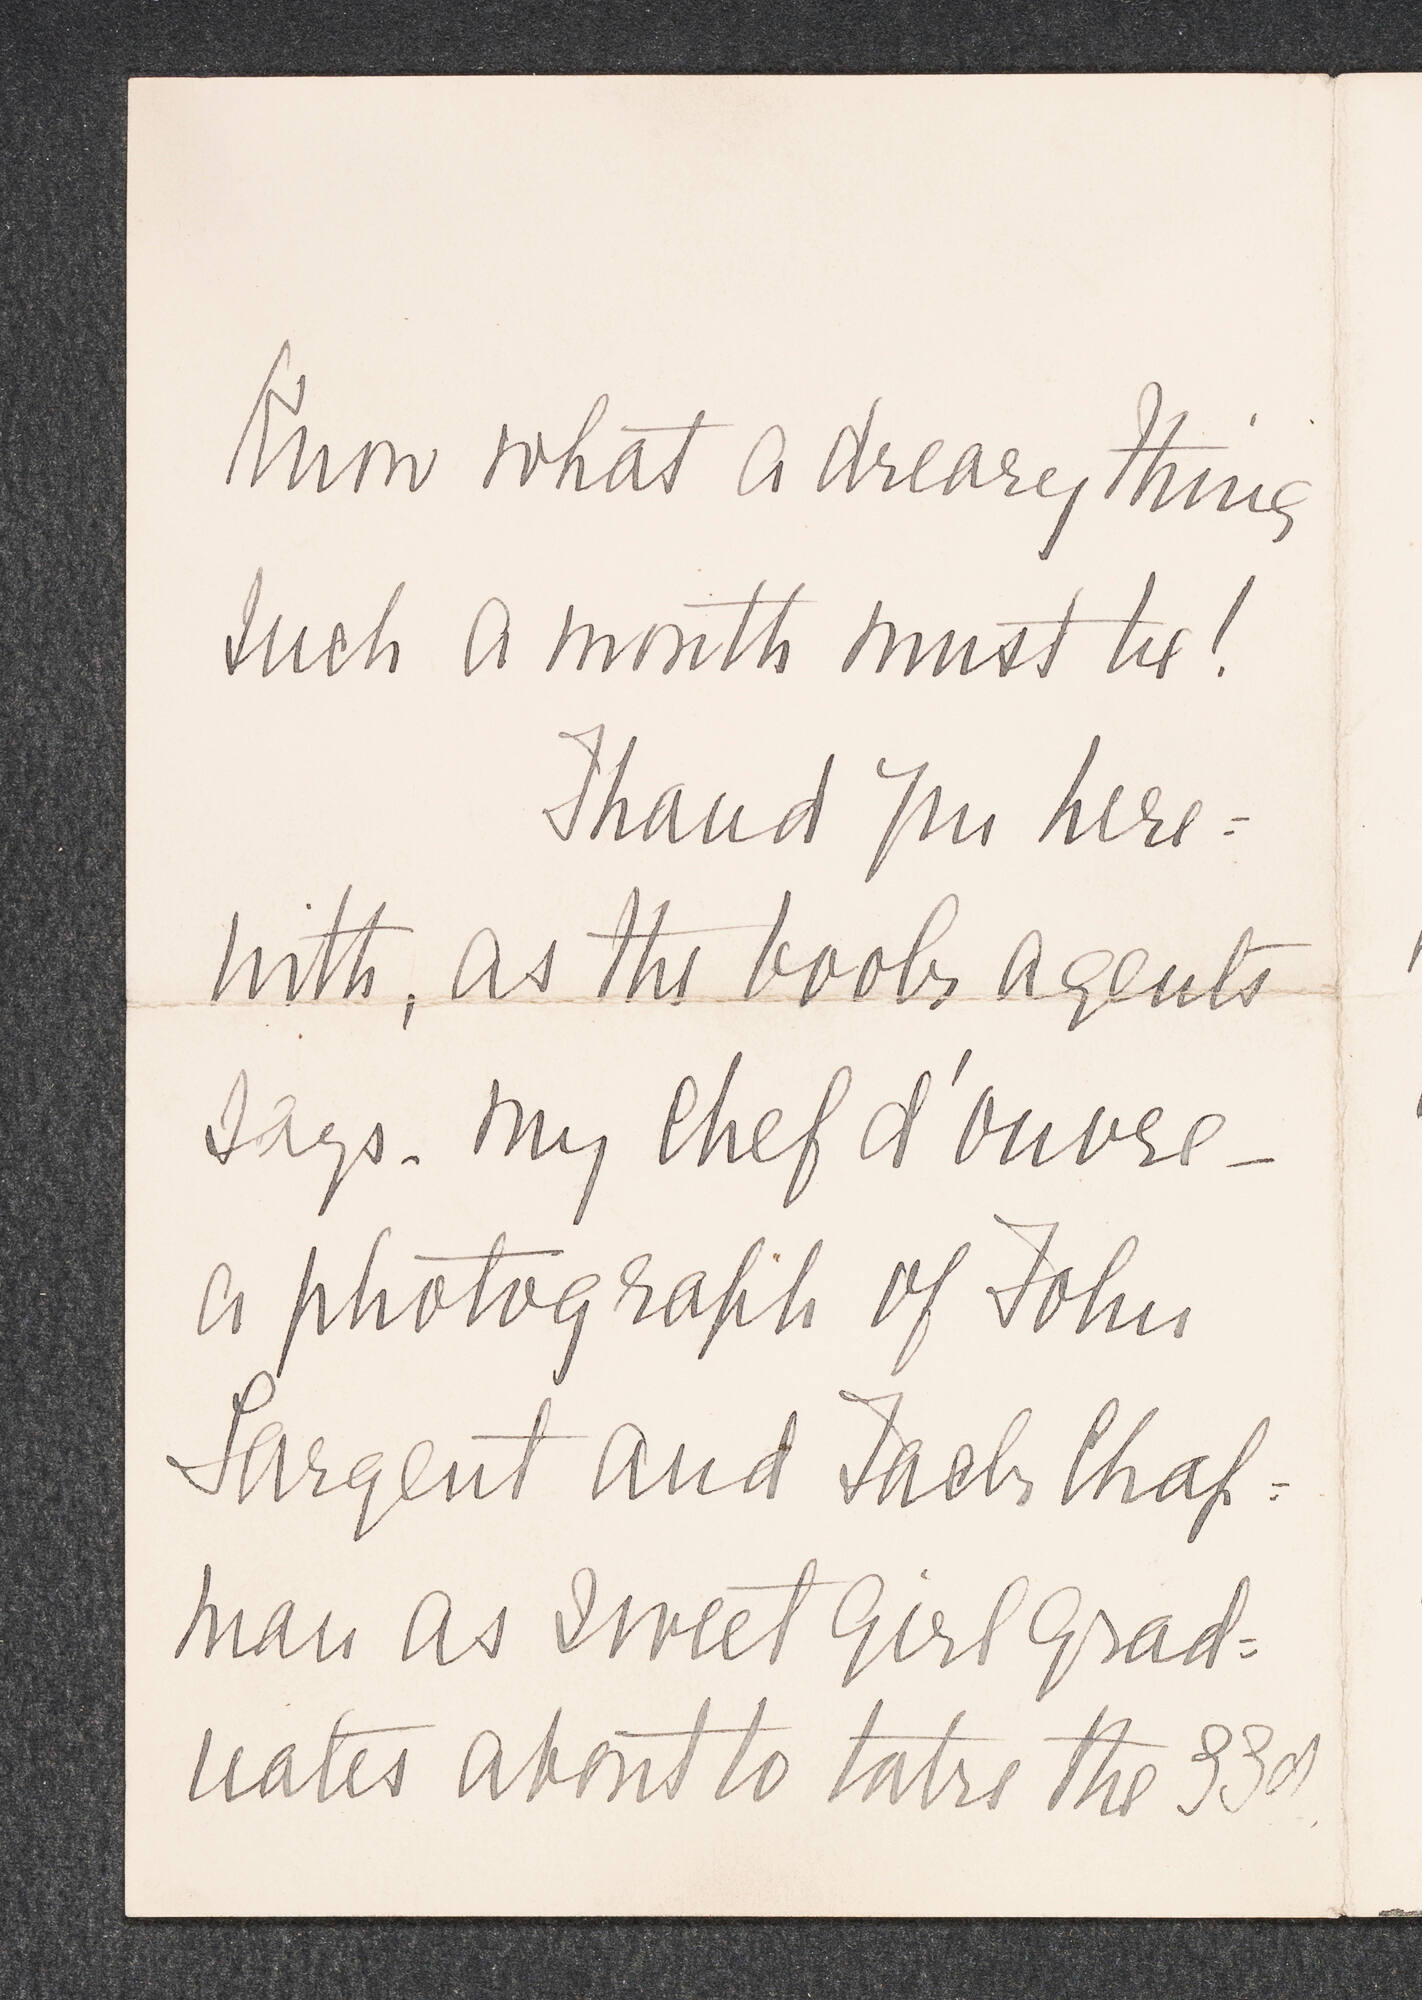 Know what a dreary thing
such a month must be!
I hand you here=
with, as the book agents
says - my chef d'ouvre -
a photograph of John
Sargent and Jack Chap=
man as sweet girl grad=
uates about to take the 33d